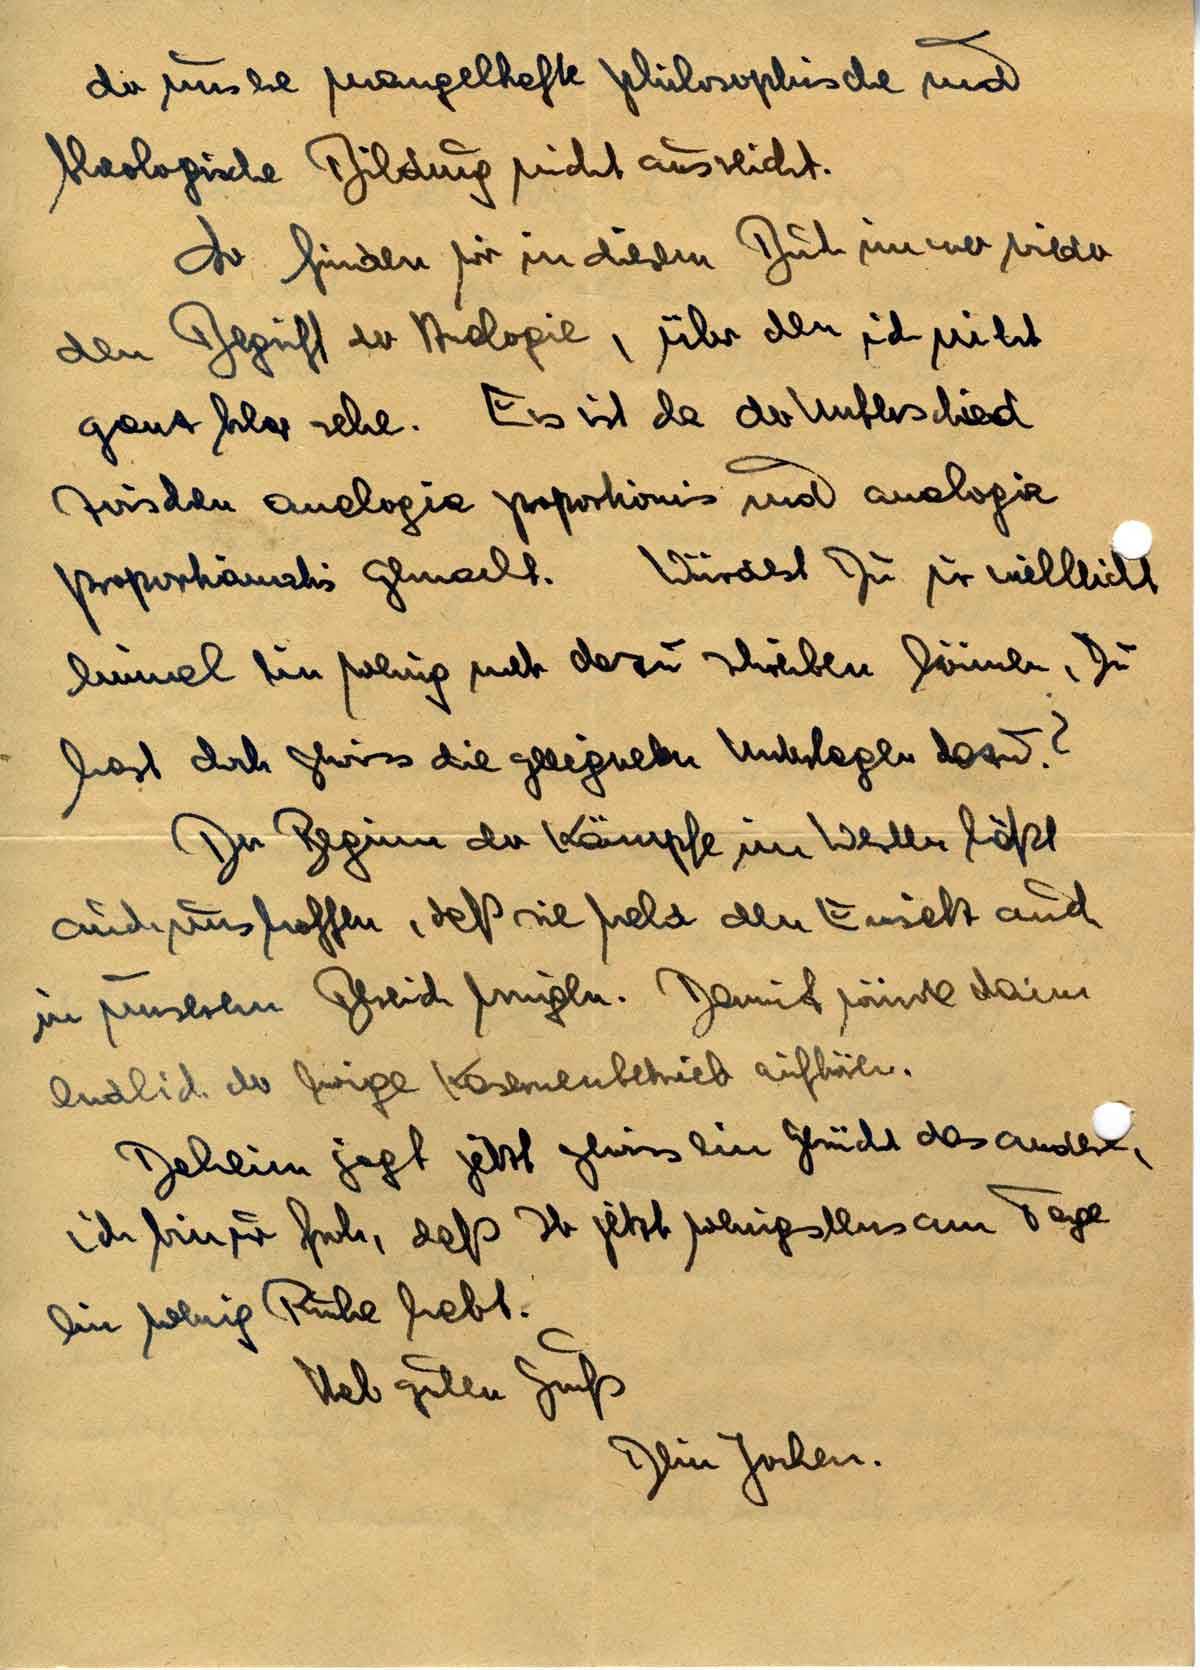 da unsere mangelhafte philosophische und
theologische Bildung nicht ausreicht.
So finden wir in diesem Buch immer wieder
den Begriff der Analogie, über den ich nicht
ganz klar sehe. Es ist da der Unterschied
zwischen analogia proportionis und analogia
proportionalis gemacht. Würdest Du mir vielleicht
einmal ein wenig mehr dazu schreiben können, Du
hast doch gewiss die geeigneten Unterlagen dazu?
Der Beginn der Kämpfe im Westen läßt
auch uns hoffen, daß sie bald den Einsatz auch
in unserem Bereich bringen. Damit würde dann
endlich der ewige Kasernenbetrieb aufhören.
Daheim jagt jetzt gewiss ein Gerücht das andere,
ich bin nur froh, daß Ihr jetzt wenigstens am Tage
ein wenig Ruhe habt.
Hab guten Gruß
Dein Jochen.